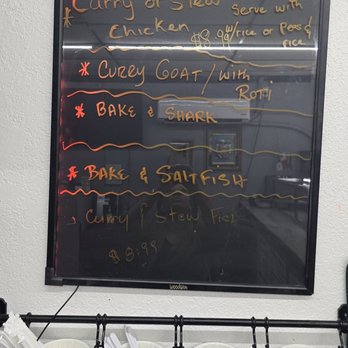 Curry or Stew
Serve with
* Chicken
w/rice or Peas &
$8.99 rice
* CURRY GOAT/with
ROTI
* BAKE & SHARK
* BAKE & SALTFISH
Curry / Stew
$8.99
woozoo